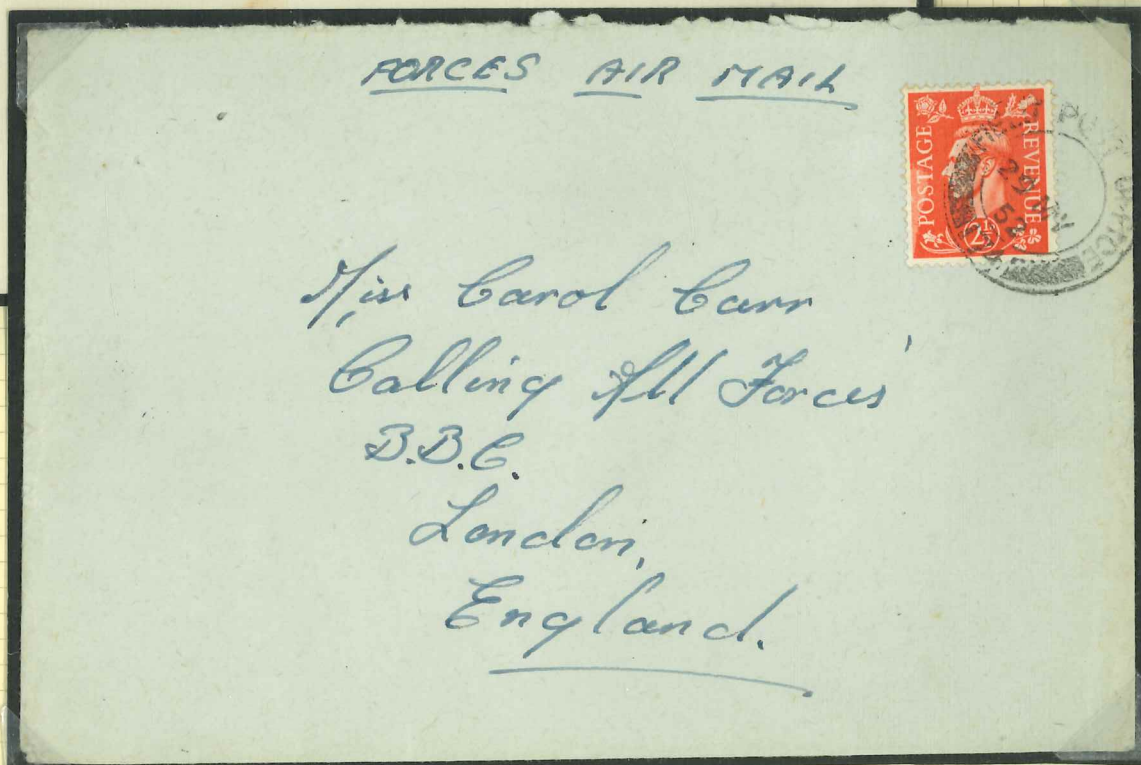 FORCES AIR MAIL
POSTAGE REVENUE
2½
FIELD POST OFFICE
Miss Carol Carr
'Calling All Forces'
B.B.C.
London,
England.